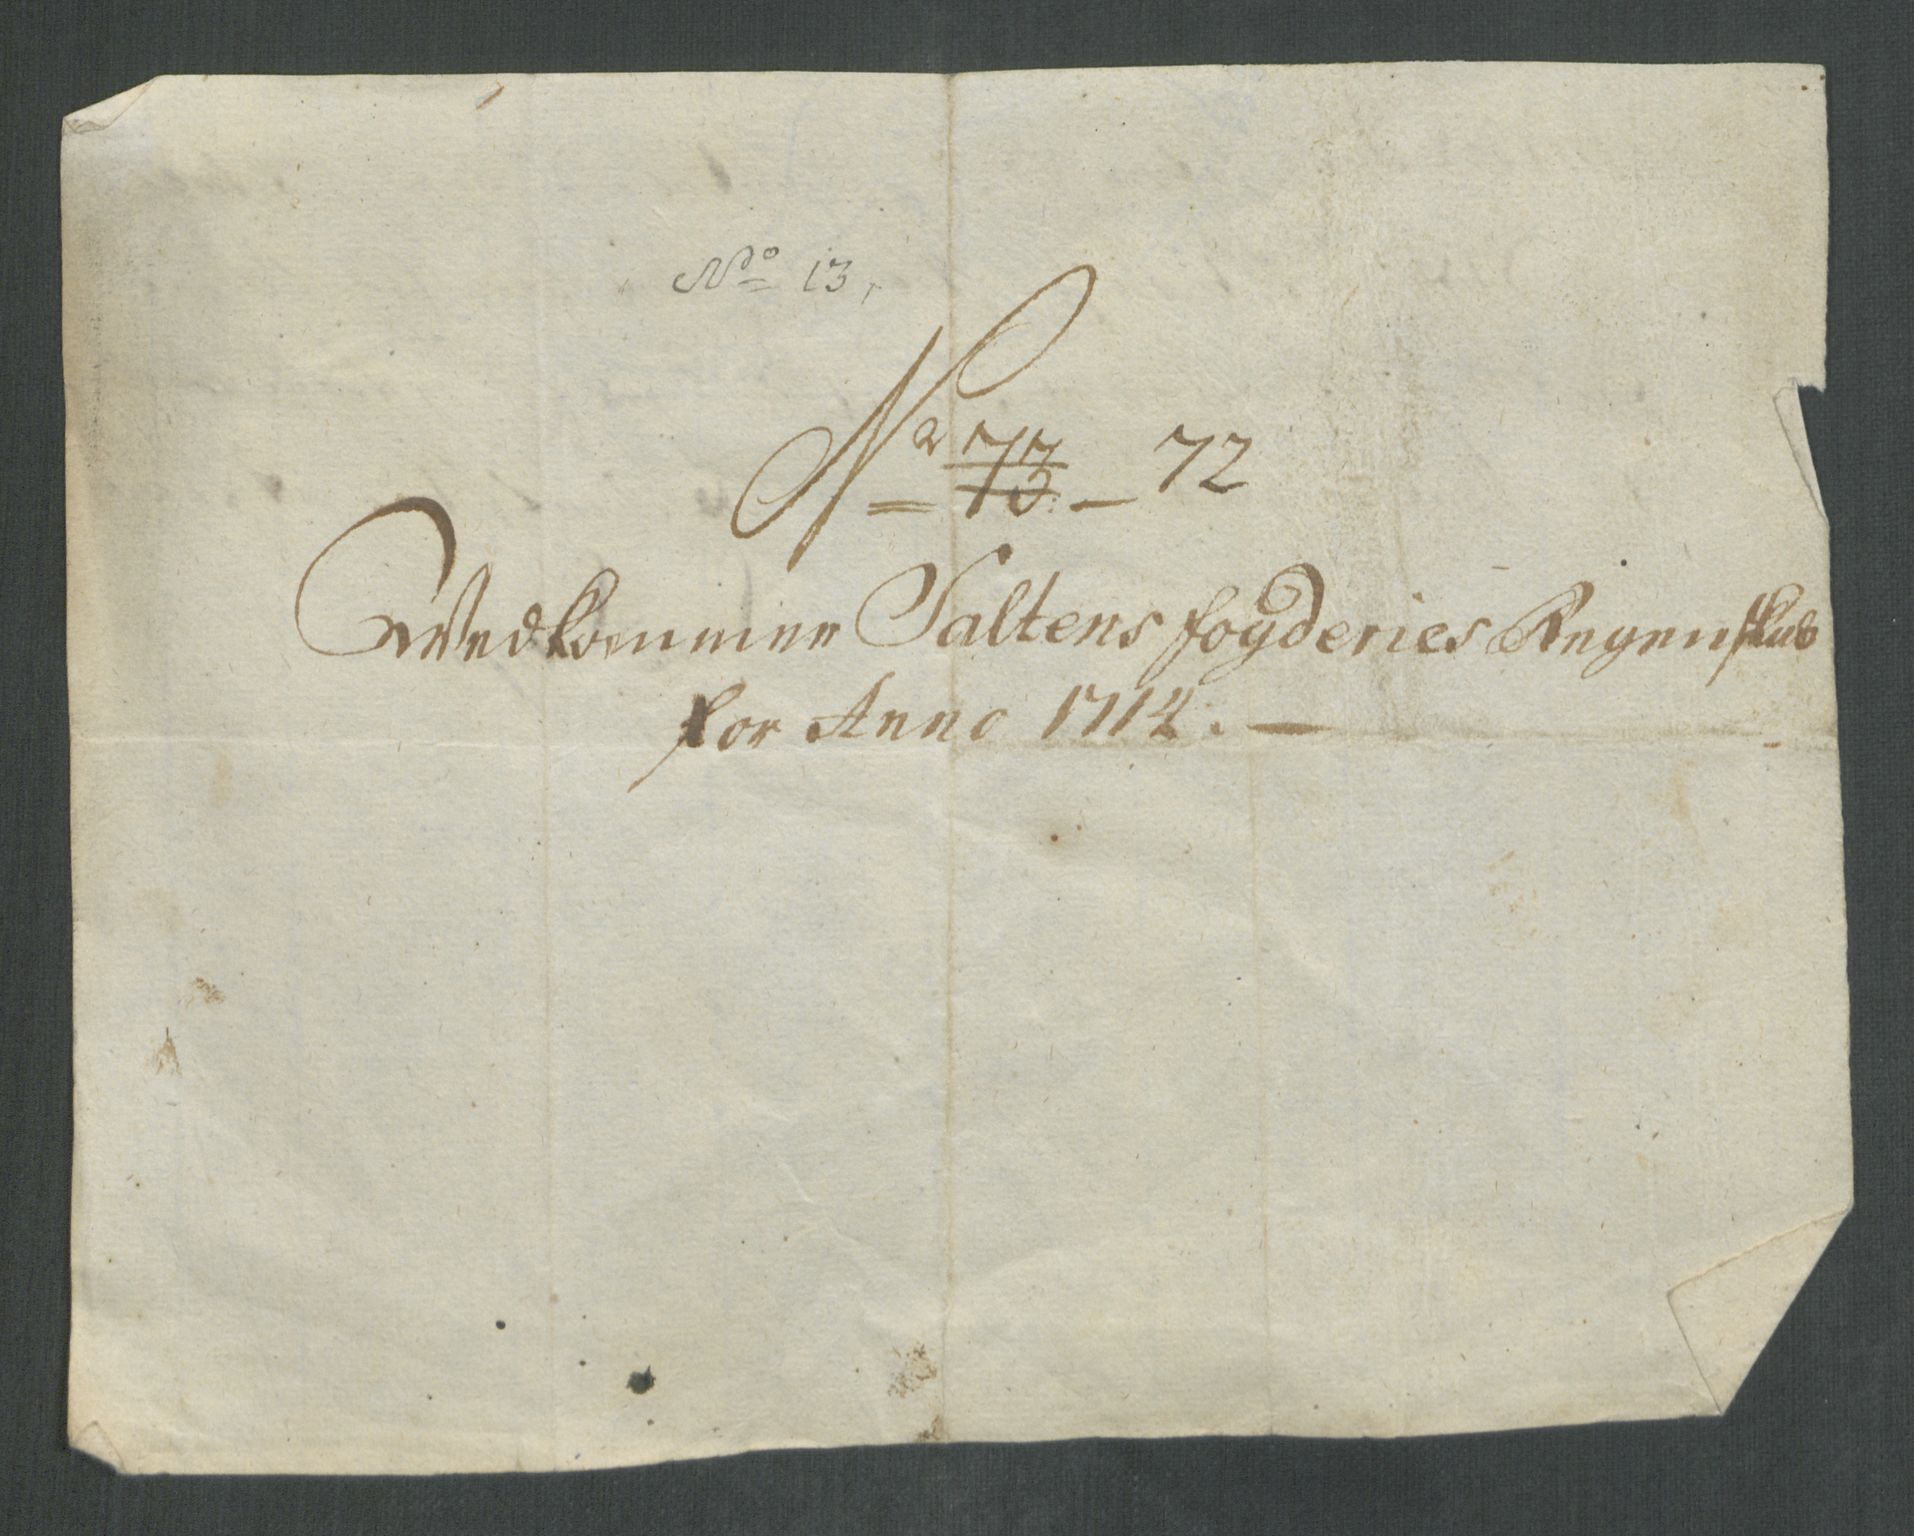 No 13,
No 73 — 72
Wedkommer Saltens fogderies Regenskab
for Anno 1714. —